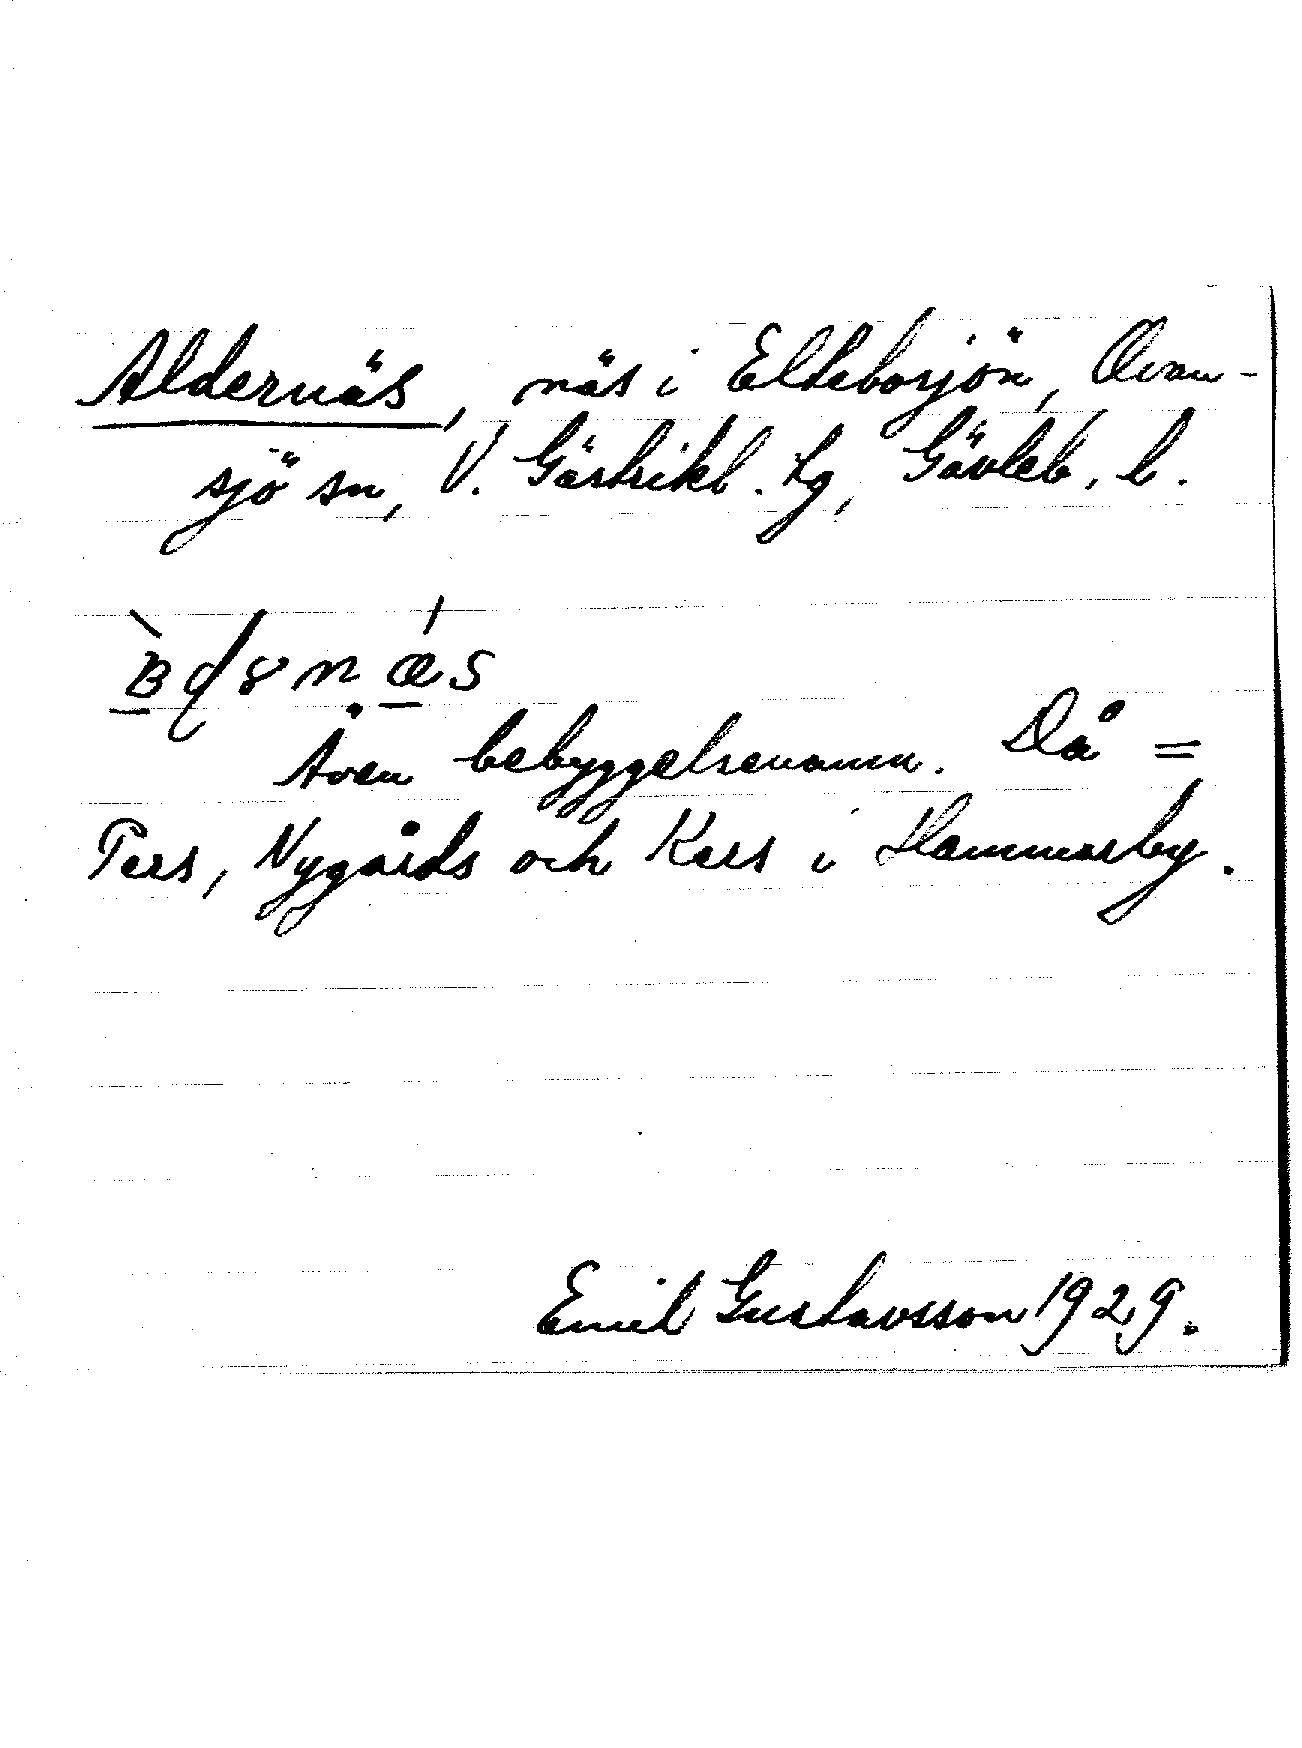 Aldernäs, näs i Eltebosjön, Ovan-
sjö sn, V. Gästrikl. tg, Gävleb. l.
Även bebyggelsenamn. Då =
Pers, Nygårds och Kers i Hammarby.
Emil Gustavsson 1929.